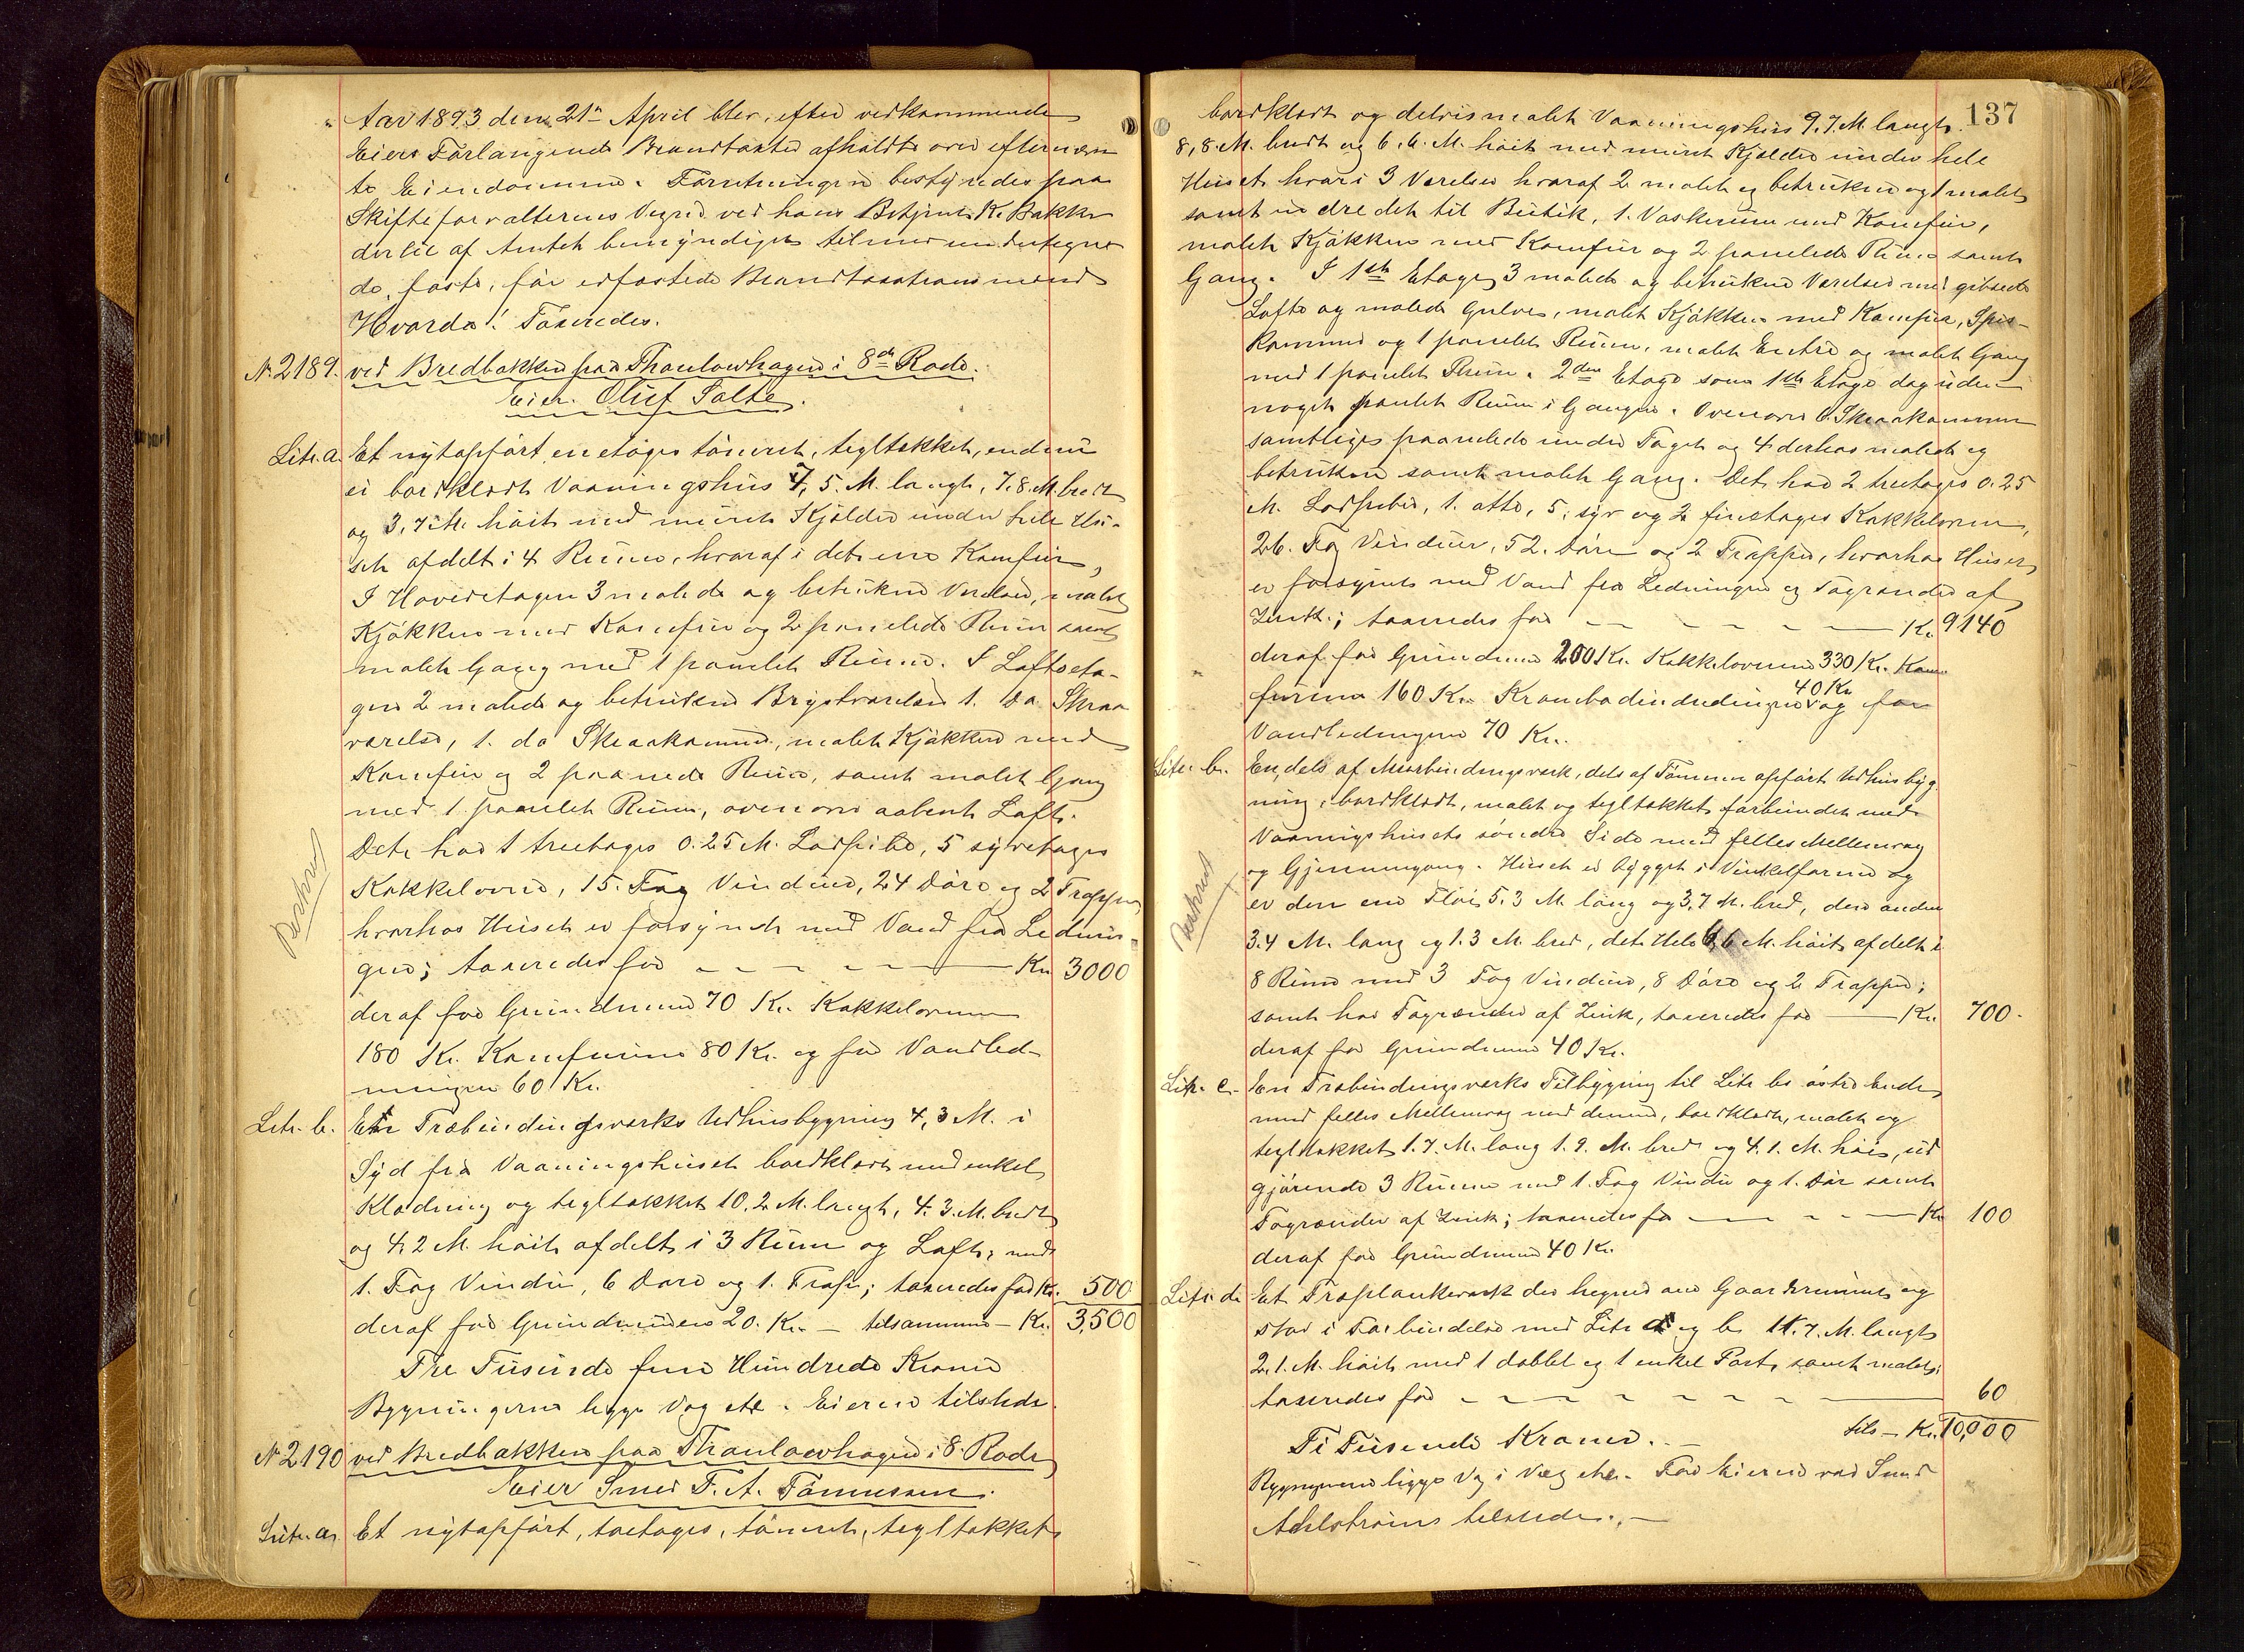 Aar 1893 den 21de April blev, efter vedkommende
Eiers Forlangende Brandtaxter afholdte over efternævn
te Eiendomme. Forretningen bestyredes paa
Skifteforvalterens Vegne ved hans Betjent K. Bakke
dertil af Amtet bemyndiget tilmed undertegne
de, faste, før edfæstede Brandtaxationsmænd
Hvorda! Taxeredes.
№ 2189. ved Bredbakken paa Thaulowhagen i 8de Rode.
Eier. Oluf Salte.
Litr. a. Et nytopført, enetages tømret, tegltækket, endnu
ei bordklædt Vaaningshus 7,5. M. langt, 7.8. M. bredt
og 3,7 M. høit med muret Kjelder under hele Hu-
set afdelt i 4 Rum, hvoraf i det ene Komfur,
I Hovedetagen 3 malede og betrukne Værelser, malet
Kjøkken med Komfur og 2 panelede Rum samt
malet Gang med 1 panelet Rum. I Loftseta-
gen 2 malede og betrukne Brystværelser 1. do Skraa
værelse, 1. do Skraakammer, malet Kjøkken med
Komfur og 2 panelede Rum, samt malet Gang
med 1. panelet Rum, ovenover aabent Loft.
Det har 1 treetages 0.25 M. Ladpibe, 5 syvetages
Kakkelovne, 15. Fag Vinduer, 24 Døre og 2 Trapper,
hvorhos Huset er forsynet med Vand fra Lednin-
gen; taxeredes for — Kr. 3000
deraf for Grundmuren 70 Kr. Kakkelovnene
180 Kr. Komfurene 80 Kr. og for Vandled-
ningen 60 Kr.
Destrued
Litr. b. En Træbindingsværks Udhusbygning 4,3 M. i
Syd fra Vaaningshuset bordklædt med enkel
Klædning og tegltækket 10.2 M. langt, 4.3. M. bredt
og 4.2 M. høit afdelt i 3 Rum og Loft, med
1. Fag Vindu, 6 Døre og 1. Trap; taxeredes for Kr. 500
deraf for Grundmuren 20. Kr. — tilsammen — Kr. 3,500
Tre Tusinde fem Hundrede Kroner
Bygningerne ligge Væg etc. Eieren tilstede.
№ 2190 ved Bredbakken paa Thaulowhagen i 8. Rode
Eier Smed F. A. Tønnesen.
Litr. a. Et nytopført, toetages, tømret, tegltækket,
137
bordklædt og delvis malet Vaaningshus 9.7. M. langt.
8,8. M. bredt og 6.6. M. høit med muret Kjelder under hele
Huset hvori 3 Værelser hvoraf 2 malet og betrukne og 1 malet
samt indredet til Butik, 1. Vaskerum med Komfur,
malet Kjøkken med Komfur og 2 panelede Rum samt
Gang. I 1ste Etage 3 malede og betrukne Værelser med gibsede
Lofte og malede Gulve, malet Kjøkken med Komfur, Spis-
kammer og 1 panelet Rum, malet Entre og malet Gang
med 1 panelet Rum. 2den Etage som 1ste Etage dog uden
noget panelet Rum i Gangen. Ovenover 6. Skraakammer
samtlige panelede under Taget og 4 derhos malede og
betrukne samt malet Gang. Det har 2 treetages 0.25
M. Ladpiber, 1. otte, 5. syv og 2 firetages Kakkelovne,
26. Fag Vinduer, 52. Døre og 2 Trapper, hvorhos Huset
er forsynet med Vand fra Ledningen og Tagrender af
Zink; taxeredes for — Kr. 9140
deraf for Grundmuren 200 Kr. Kakkelovnene 330 Kr. Kom
furene 160 Kr. Krambodindredningen 40 Kr og for
Vandledningen 70 Kr.
Litr. b. En, dels af Murbindingsværk, dels af Tømmer opført Udhusbyg
ning, bordklædt, malet og tegltækket forbunden med
Vaaningshusets søndre Side med fælles Mellemvæg
og Gjennemgang. Huset er bygget i Vinkelform og
er den ene Fløi 5.3 M. lang og 3.7 M. bred, den anden
3.4 M. lang og 1.3 M. bred, det Hele 6,6 M. høit afdelt i
8 Rum med 3 Fag Vinduer, 8 Døre og 2 Trapper;
samt har Tagrender af Zink, taxeredes for — Kr. 700.
deraf for Grundmuren 40 Kr.
Destrued
Litr. c. En Træbindingsværks Tilbygning til Litr. b. østre Ende
med fælles Mellemvæg med denne, bordklædt, malet og
tegltækket 1.7. M. lang 1.9. M. bred og 4.1. M. høi, ud
gjørende 3 Rum med 1. Fag Vindu og 1. Dør samt
Tagrender af Zink; taxeredes for — Kr 100
deraf for Grundmuren 40 Kr.
Litr. d. Et Træplankeværk der hegner om Gaardsrummet og
staar i Forbindelse med Litr. a og b 11.7. M. langt
2.1. M. høit med 1 dobbel og 1 enkel Port, samt malet;
taxeredes for — 60
Ti Tusinde Kroner. — tils — Kr. 10,000
Bygningerne ligge Væg i Væg etc. For Eieren var Smed
Adelstrøms tilstede. —